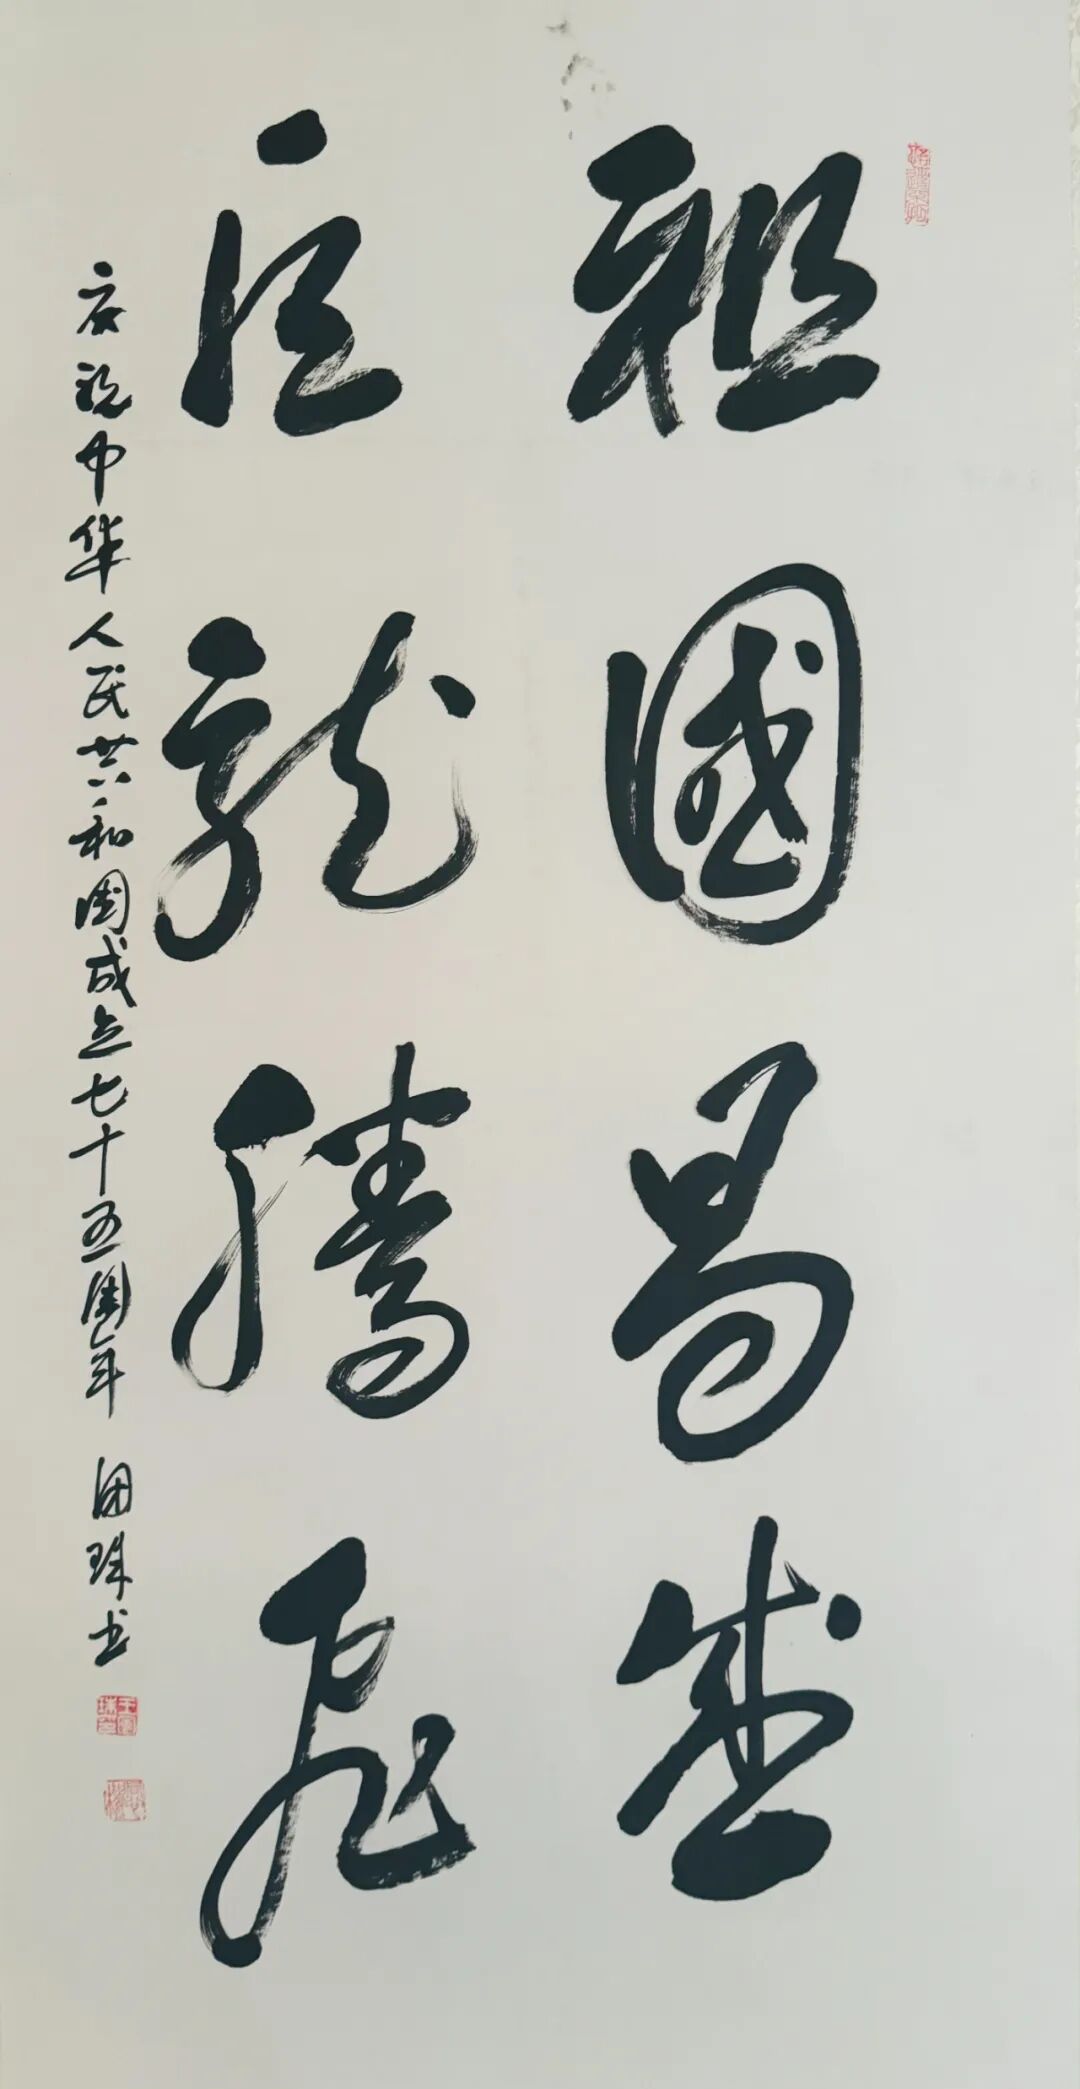 祖國昌盛
巨龍騰飛
庆祝中华人民共和国成立七十五周年 国珠书